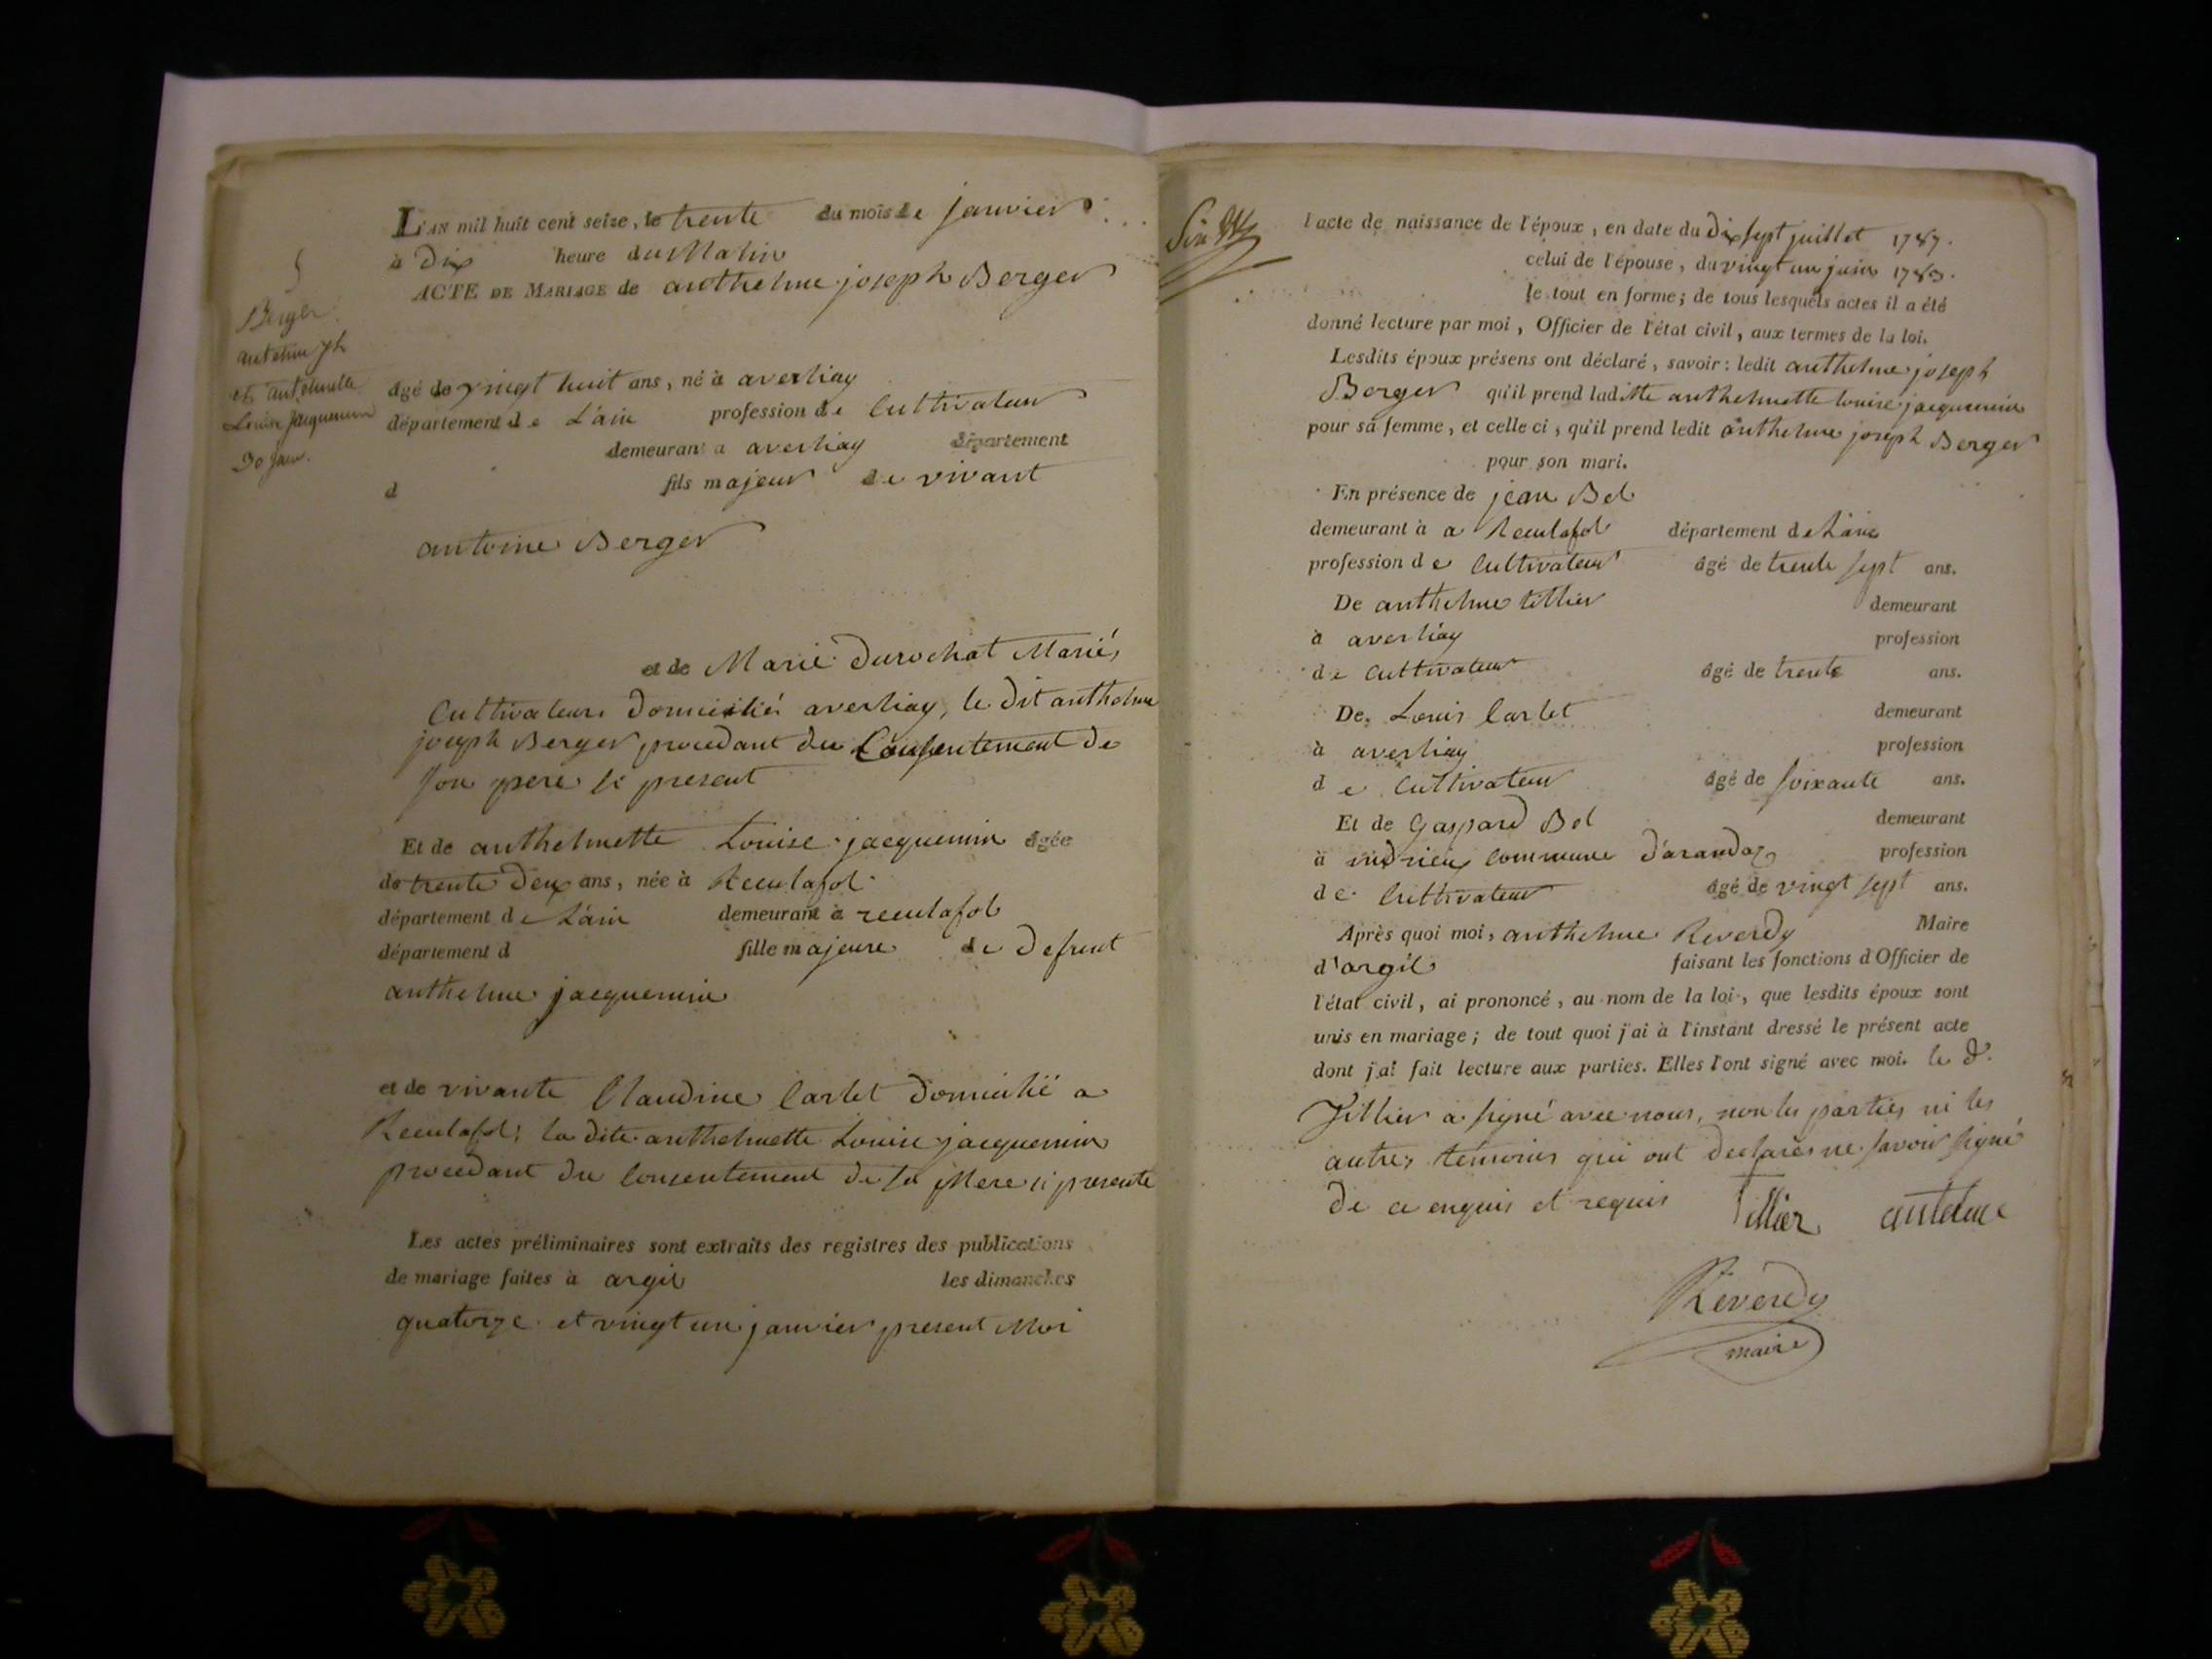 L'AN mil huit cent seize, le trente du mois de janvier
à Dix heure du Matin
ACTE DE MARIAGE de anthelme joseph Berger
Berger
antelme jh
et antelmette
Louise Jacquemin
30 janv.
âgé de vingt huit ans, né à averliay
département de L'ain profession de Cultivateur
demeurant a averliay département
d fils majeur de vivant
antoine Berger
et de Marie Durochat Marié,
Cultivateurs Domicilié averliay, le dit anthelme
joseph Berger procedant du Consentement de
son pere si present
Et de anthelmette Louise jacquemin âgée
de trente Deux ans, née à Reculafol
département de L'ain demeurant à reculafol
département d fille majeure de Defunt
anthelme jacquemin
et de vivante Claudine Carlet Domicilié a
Reculafol; la dite anthelmette Louise jacquemin
procedant du Consentement de sa Mere si presente
Les actes préliminaires sont extraits des registres des publications
de mariage faites à argil les dimanches
quatorze et vingt un janvier present Moi
l'acte de naissance de l'époux, en date du Dix sept juillet 1787.
celui de l'épouse, du vingt un juin 1783.
le tout en forme; de tous lesquels actes il a été
donné lecture par moi, Officier de l'état civil, aux termes de la loi.
Lesdits époux présens ont déclaré, savoir: ledit anthelme joseph
Berger qu'il prend laditte anthelmette louise jacquemin
pour sa femme, et celle ci, qu'il prend ledit anthelme joseph Berger
pour son mari.
En présence de jean Bel
demeurant à a Reculafol département de L'ain
profession de Cultivateur âgé de trente sept ans.
De anthelme tillier demeurant
à averliay profession
de Cultivateur âgé de trente ans.
De Louis Carlet demeurant
à averliay profession
de Cultivateur âgé de soixante ans.
Et de Gaspard Bel demeurant
à indrieu commune d'arandaz profession
de Cultivateur âgé de vingt sept ans.
Après quoi moi, anthelme Reverdy Maire
d'argil faisant les fonctions d'Officier de
l'état civil, ai prononcé, au nom de la loi, que lesdits époux sont
unis en mariage; de tout quoi j'ai à l'instant dressé le présent acte
dont j'ai fait lecture aux parties. Elles l'ont signé avec moi. le d.
Tillier a signé avec nous, non les parties ni les
autres temoins qui ont declarés ne savoir signé
de ce enquis et requis Tillier antelme
Reverdy
maire